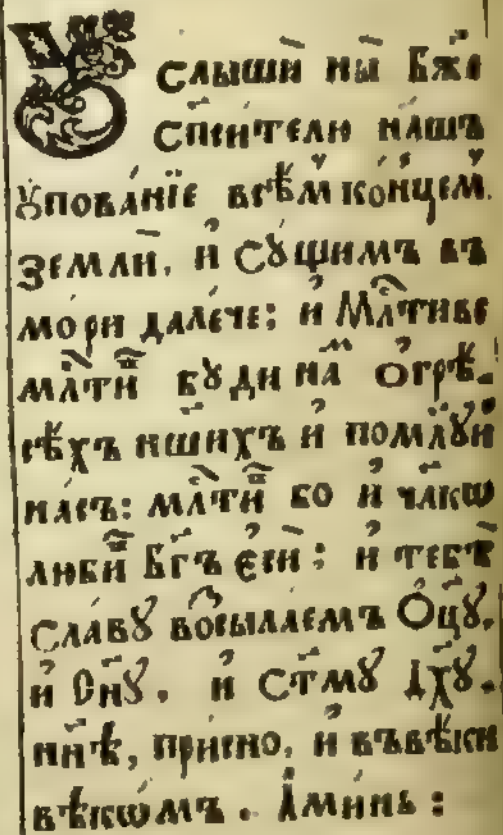 Ꙋслыши ны Бж҃е
Сп҃ситєлю нашъ
ꙋпованїе всѣм концем.
Земли, и сꙋщимъ въ
мори далече: и Мл҃тиве
мл҃тив бꙋди на о грѣ-
сѣхъ нш҃ихъ и помл҃ꙋи
насъ: мл҃тив бо и чл҃кѡ
любив Бг҃ъ єси: и тебѣ
славꙋ возсылаемъ Оц҃ꙋ,
и Сн҃ꙋ, и Ст҃мꙋ Дх҃ꙋ.
нн҃ѣ, присно, и въвѣки
вѣкѡмъ. Аминь: